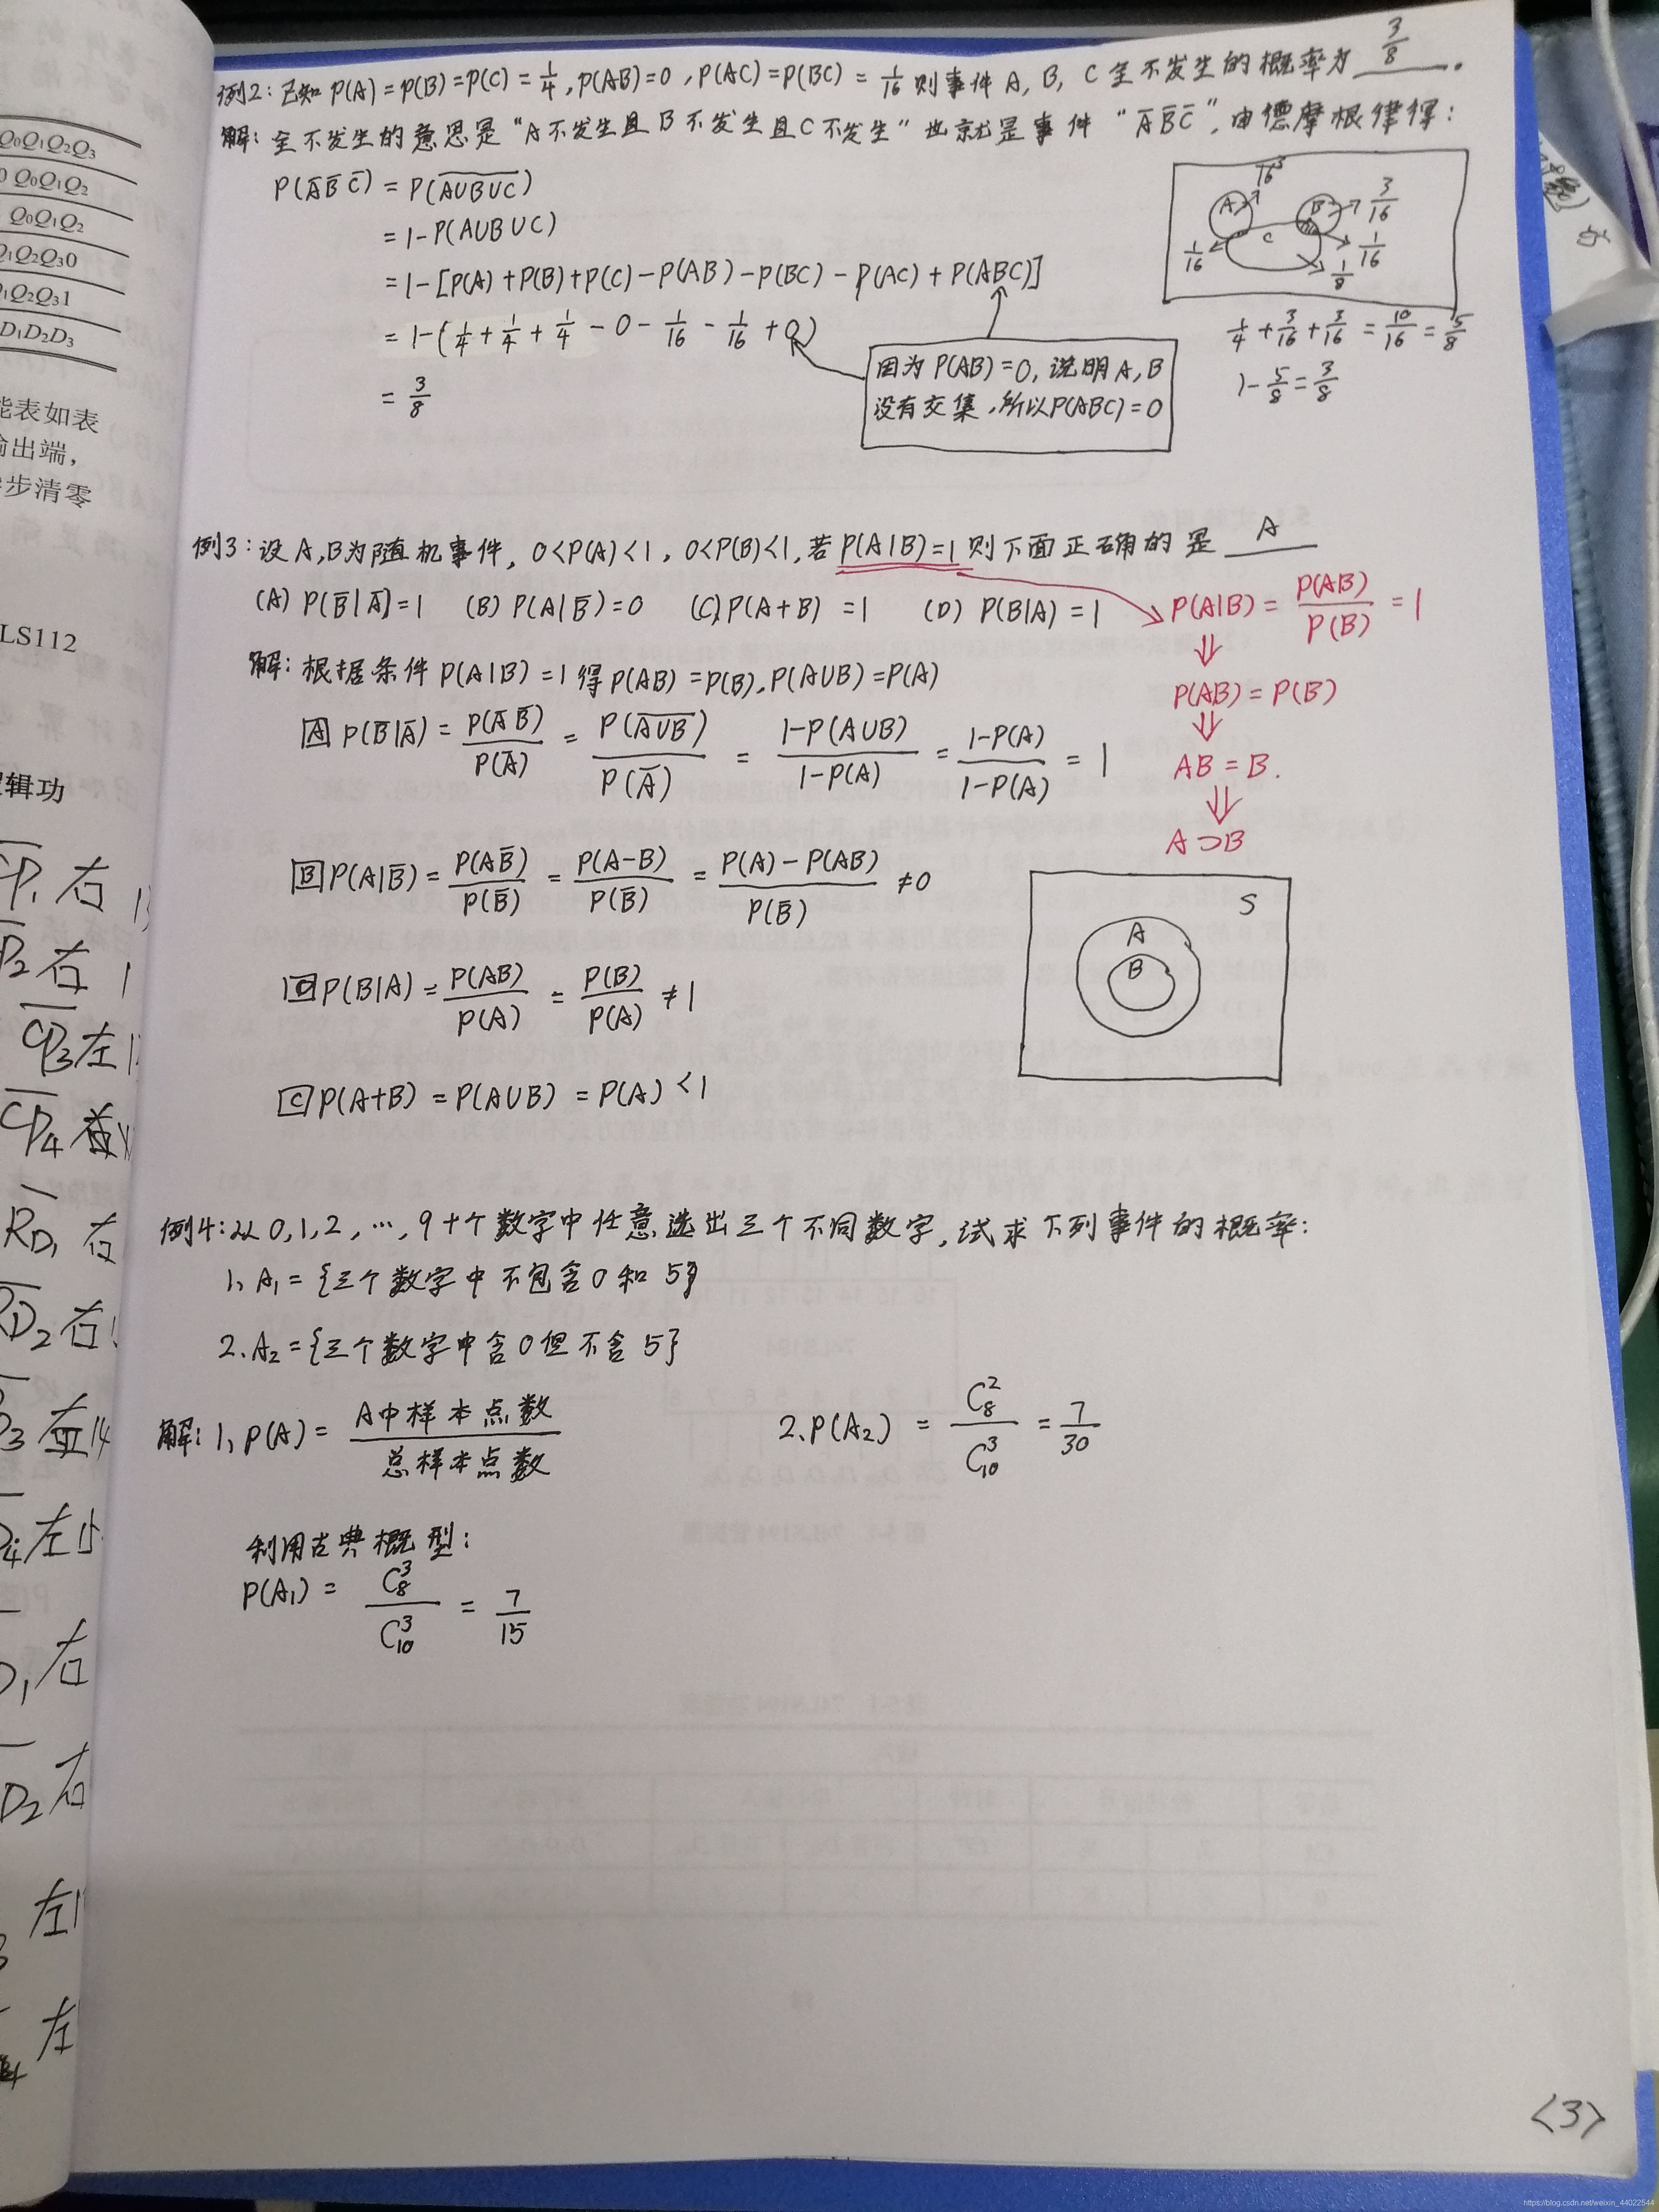 例2：已知 P(A)=P(B)=P(C)=1/4, P(AB)=0, P(AC)=P(BC)=1/16 则事件 A, B, C 全不发生的概率为 3/8 .
解：全不发生的意思是"A不发生且B不发生且C不发生"也就是事件 "A̅B̅C̅", 由德摩根律得：
P(A̅B̅C̅) = P(\overline{A∪B∪C})
= 1-P(A∪B∪C)
= 1-[P(A)+P(B)+P(C)-P(AB)-P(BC)-P(AC)+P(ABC)]
= 1-(1/4+1/4+1/4-0-1/16-1/16+0)
= 3/8
因为 P(AB)=0, 说明 A, B
没有交集, 所以P(ABC)=0
3/16
A B 3/16
1/16 C 1/16
1/8
1/4+3/16+3/16=10/16=5/8
1-5/8=3/8
例3：设 A, B为随机事件, 0<P(A)<1, 0<P(B)<1, 若 P(A|B)=1 则下面正确的是 A
(A) P(B̅|A̅)=1 (B) P(A|B̅)=0 (C) P(A+B)=1 (D) P(B|A)=1
P(A|B)=P(AB)/P(B)=1
⇓
P(AB)=P(B)
⇓
AB=B.
⇓
A⊃B
解：根据条件 P(A|B)=1 得 P(AB)=P(B), P(A∪B)=P(A)
A P(B̅|A̅)=P(A̅B̅)/P(A̅)=P(\overline{A∪B})/P(A̅)=(1-P(A∪B))/(1-P(A))=(1-P(A))/(1-P(A))=1
B P(A|B̅)=P(AB̅)/P(B̅)=P(A-B)/P(B̅)=(P(A)-P(AB))/P(B̅)≠0
D P(B|A)=P(AB)/P(A)=P(B)/P(A)≠1
C P(A+B)=P(A∪B)=P(A)<1
S
A
B
例4：从 0, 1, 2, …, 9 十个数字中任意选出三个不同数字, 试求下列事件的概率：
1、A₁={三个数字中不包含0和5}
2、A₂={三个数字中含0但不含5}
解：1、P(A)=A中样本点数/总样本点数
2、P(A₂)=C₈²/C₁₀³=7/30
利用古典概型：
P(A₁)=C₈³/C₁₀³=7/15
<3>
Q₀Q₁Q₂Q₃
Q₀Q₁Q₂
Q₀Q₁Q₂
Q₁Q₂Q₃0
Q₁Q₂Q₃1
D₁D₂D₃
能表如表
输出端，
步清零
LS112
逻辑功
https://blog.csdn.net/weixin_44022544